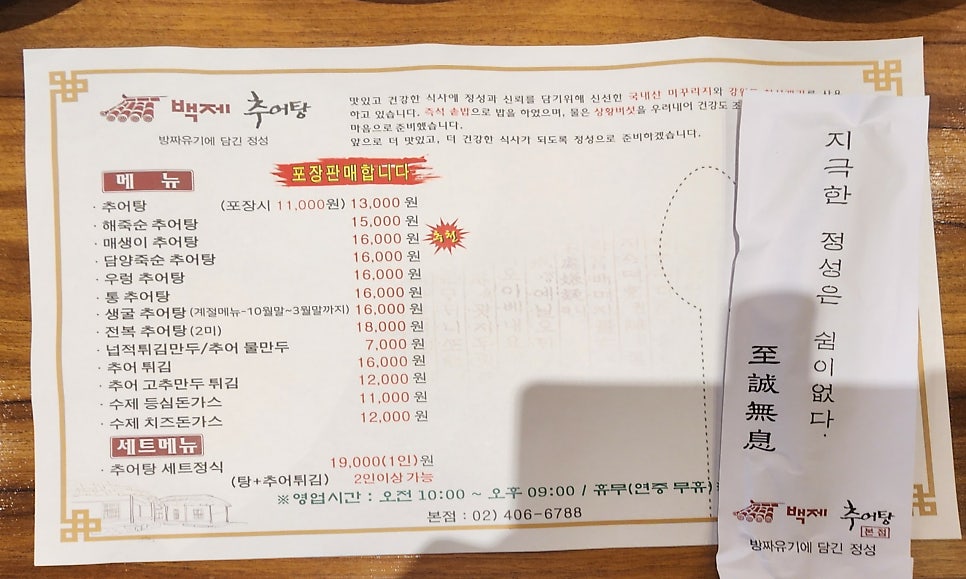 백제 추어탕
방짜유기에 담긴 정성
맛있고 건강한 식사에 정성과 신뢰를 담기위해 신선한 국내산 미꾸리지와
하고 있습니다. 즉석 솥밥으로 밥을 하였으며, 물은 상황버섯을 우려내어 건강도
마음으로 준비했습니다.
앞으로 더 맛있고, 더 건강한 식사가 되도록 정성으로 준비하겠습니다.
메 뉴
포장판매합니다
· 추어탕 (포장시 11,000원) 13,000 원
· 해죽순 추어탕 15,000 원
· 매생이 추어탕 16,000 원 추천
· 담양죽순 추어탕 16,000 원
· 우렁 추어탕 16,000 원
· 통 추어탕 16,000 원
· 생굴 추어탕 (계절메뉴-10월말~3월말까지) 16,000 원
· 전복 추어탕 (2미) 18,000 원
· 넙적튀김만두/추어 물만두 7,000 원
· 추어 튀김 16,000 원
· 추어 고추만두 튀김 12,000 원
· 수제 등심돈가스 11,000 원
· 수제 치즈돈가스 12,000 원
세트메뉴
· 추어탕 세트정식 19,000(1인)원
(탕+추어튀김) 2인이상 가능
※영업시간 : 오전 10:00 ~ 오후 09:00 / 휴무(연중 무휴)
본점 : 02) 406-6788
지극한 정성은 쉼이없다.
至誠無息
백제 추어탕
본점
방짜유기에 담긴 정성